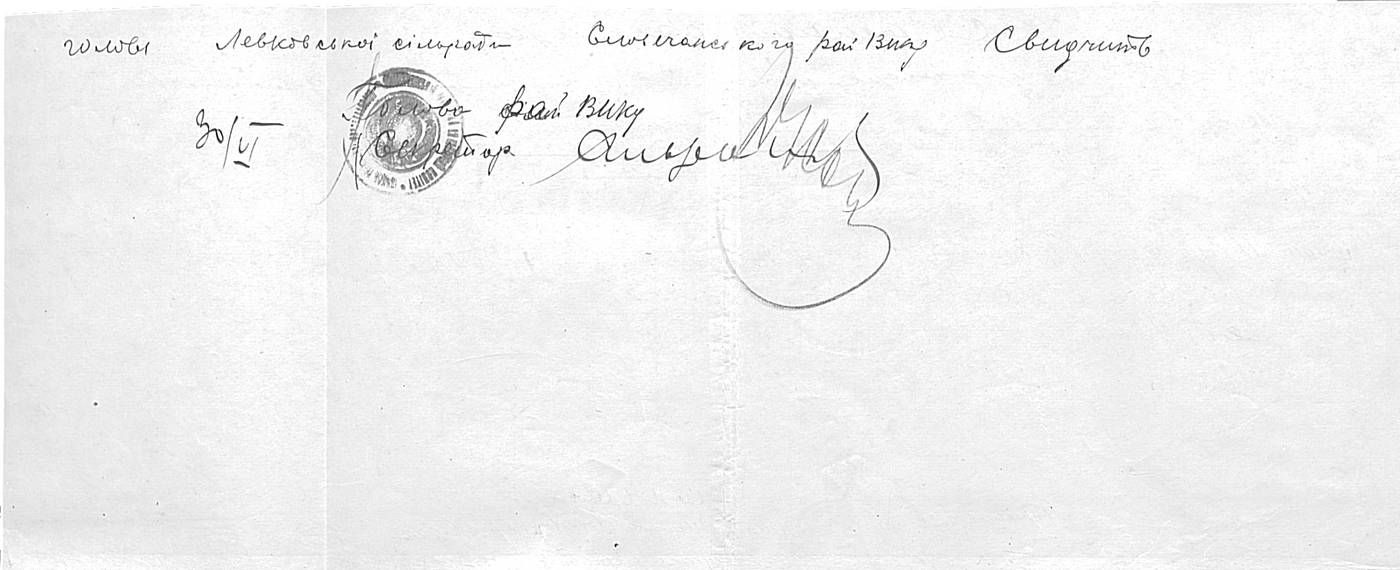 голови Левковської сільради Словечанського рай Вику Свидчить
Голова рай Вику
30/VI Секретар